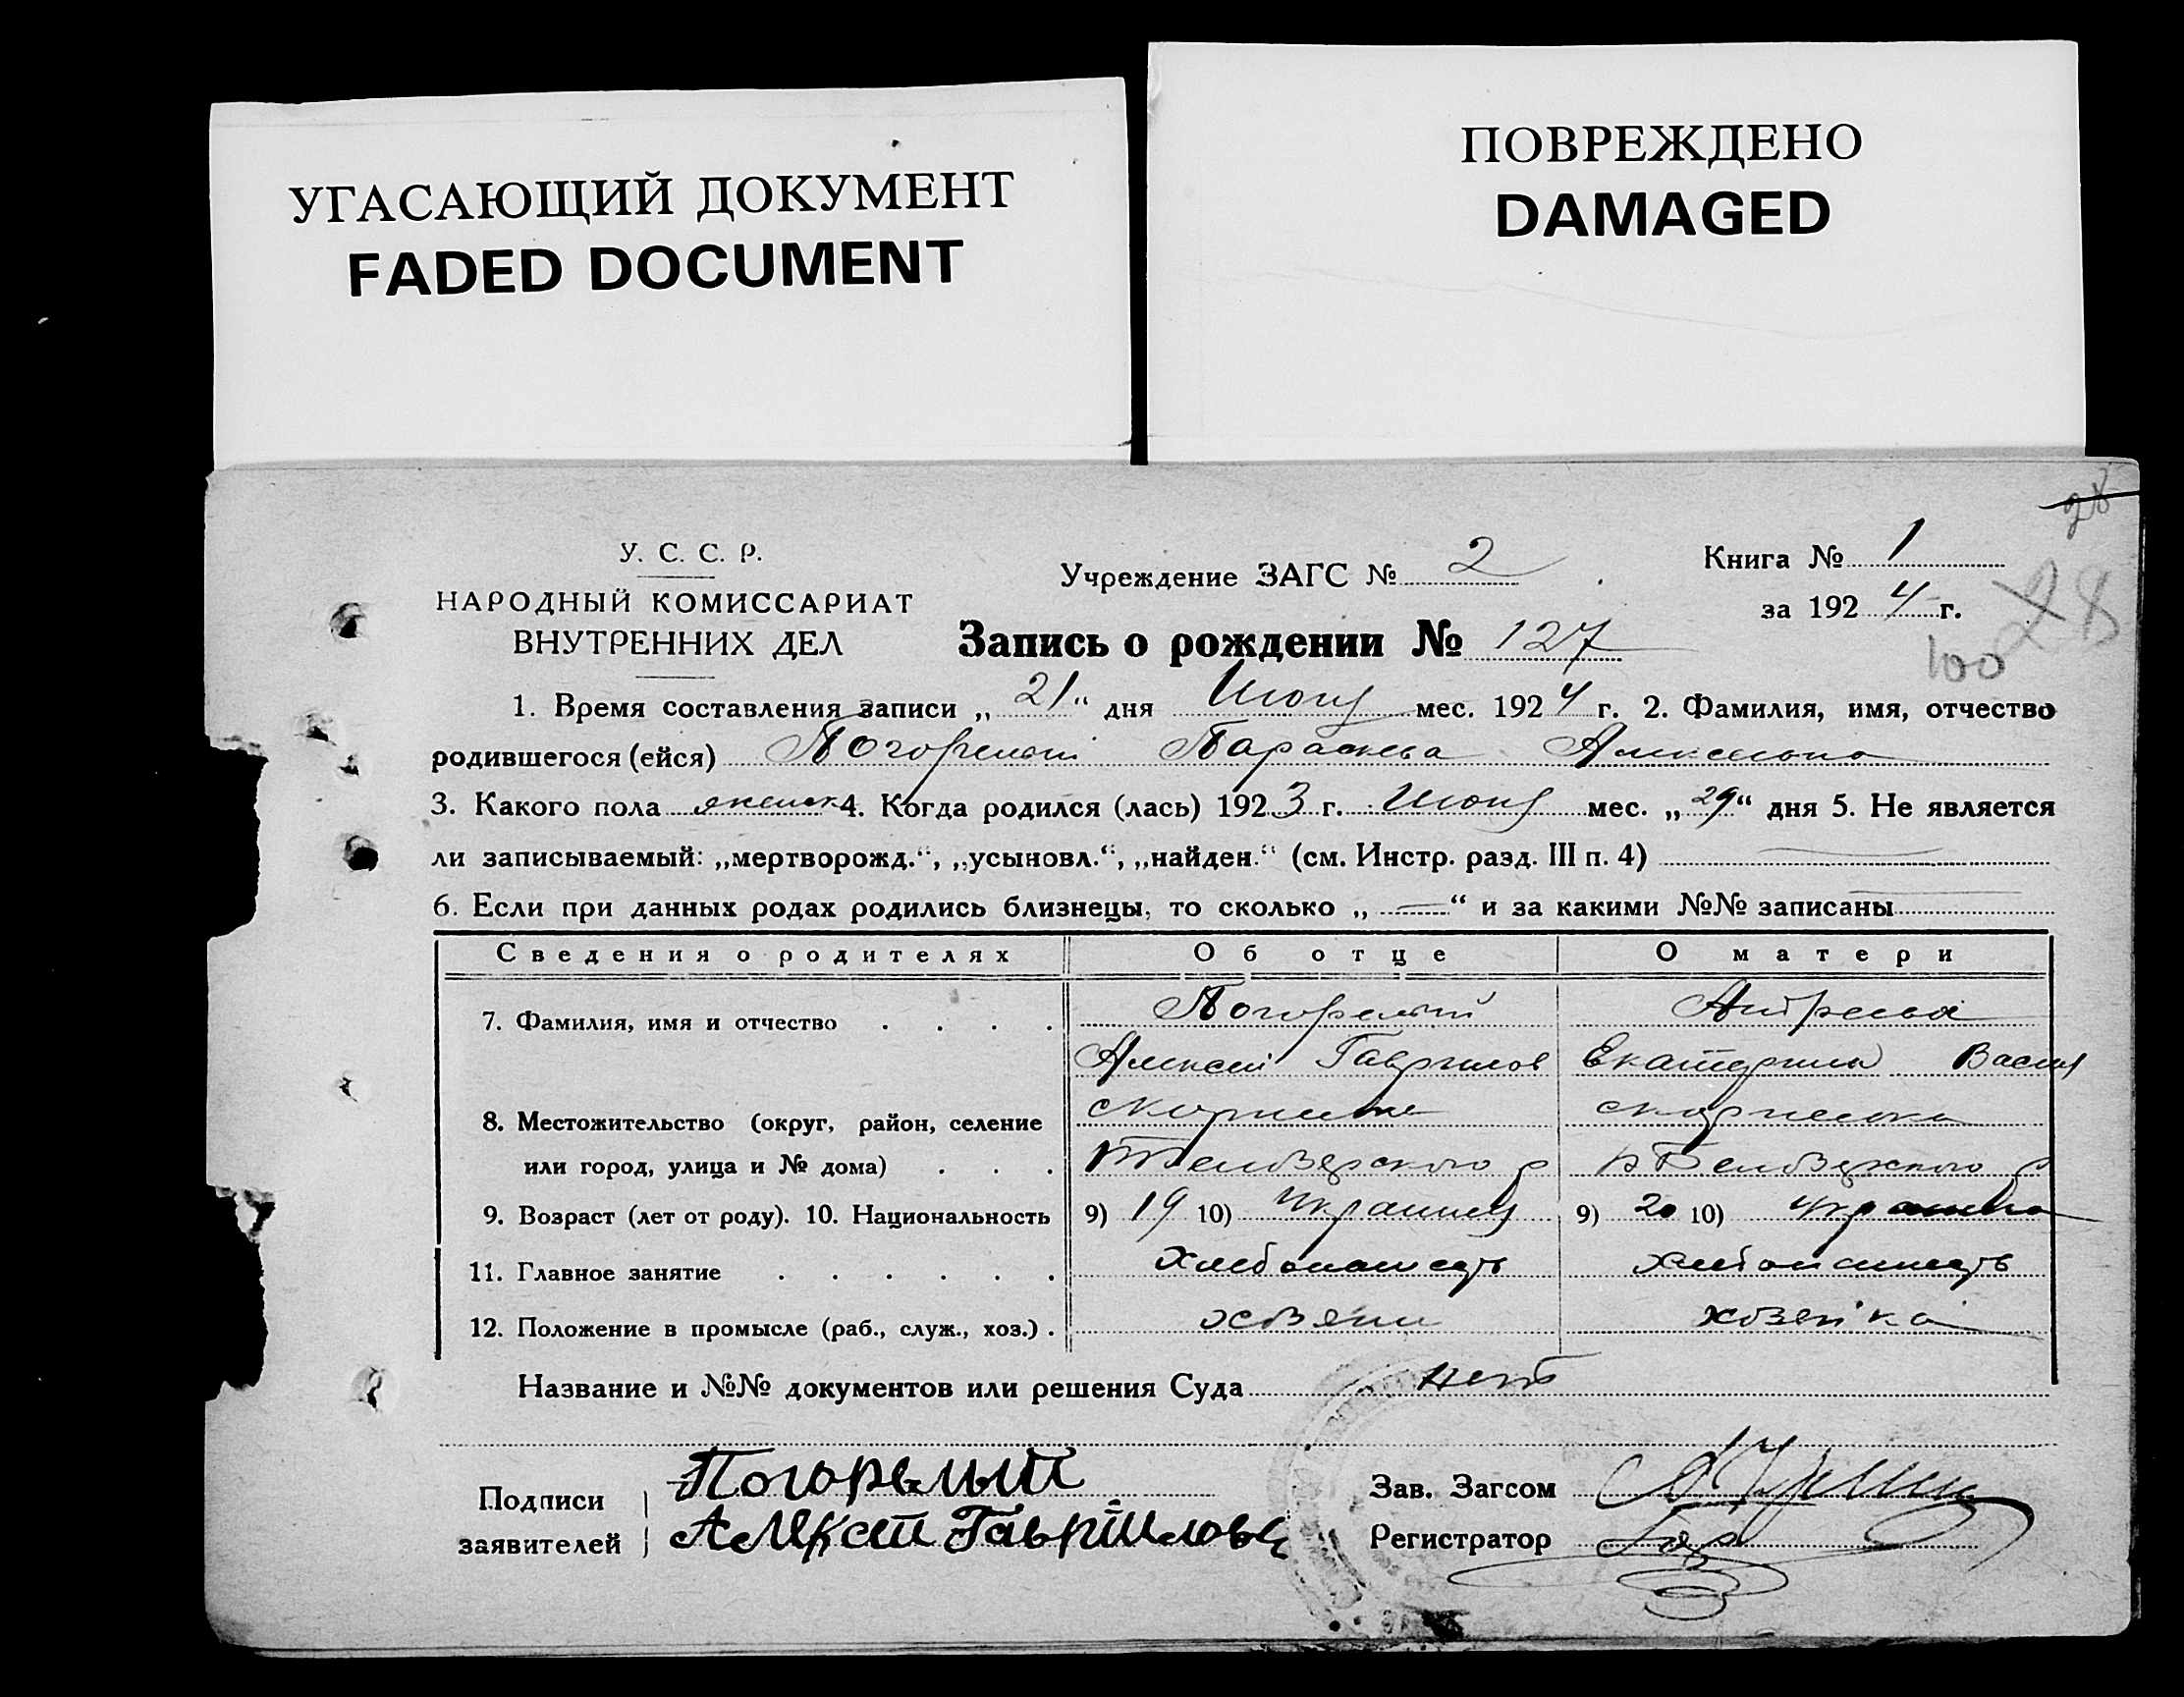 УГАСАЮЩИЙ ДОКУМЕНТ
FADED DOCUMENT
ПОВРЕЖДЕНО
DAMAGED
28
У. С. С. Р.
НАРОДНЫЙ КОМИССАРИАТ
ВНУТРЕННИХ ДЕЛ
Учреждение ЗАГС № 2
Книга № 1
за 1924 г.
28
100
Запись о рождении № 127
1. Время составления записи „21“ дня Июня мес. 1924 г. 2. Фамилия, имя, отчество
родившегося (ейся) Погорелый Параскева
3. Какого пола женск 4. Когда родился (лась) 1923 г. Июня мес. „29“ дня 5. Не является
ли записываемый: „мертворожд.“, „усыновл.“, „найден.“ (см. Инстр. разд. III п. 4) —
6. Если при данных родах родились близнецы, то сколько „—“ и за какими №№ записаны —
Сведения о родителях Об отце О матери
7. Фамилия, имя и отчество . . . . Погорелый
Алексей Гаврилов Екатерина Васил
8. Местожительство (округ, район, селение
или город, улица и № дома) . . .
9. Возраст (лет от роду). 10. Национальность 9) 19 10) Украинец 9) 20 10) украинка
11. Главное занятие . . . . . . хлебопашець хлебопашець
12. Положение в промысле (раб., служ., хоз.) . хозяин хозяйка
Название и №№ документов или решения Суда нет
Подписи
заявителей
Погорелый
Алексей Гаврилов
Зав. Загсом
Регистратор